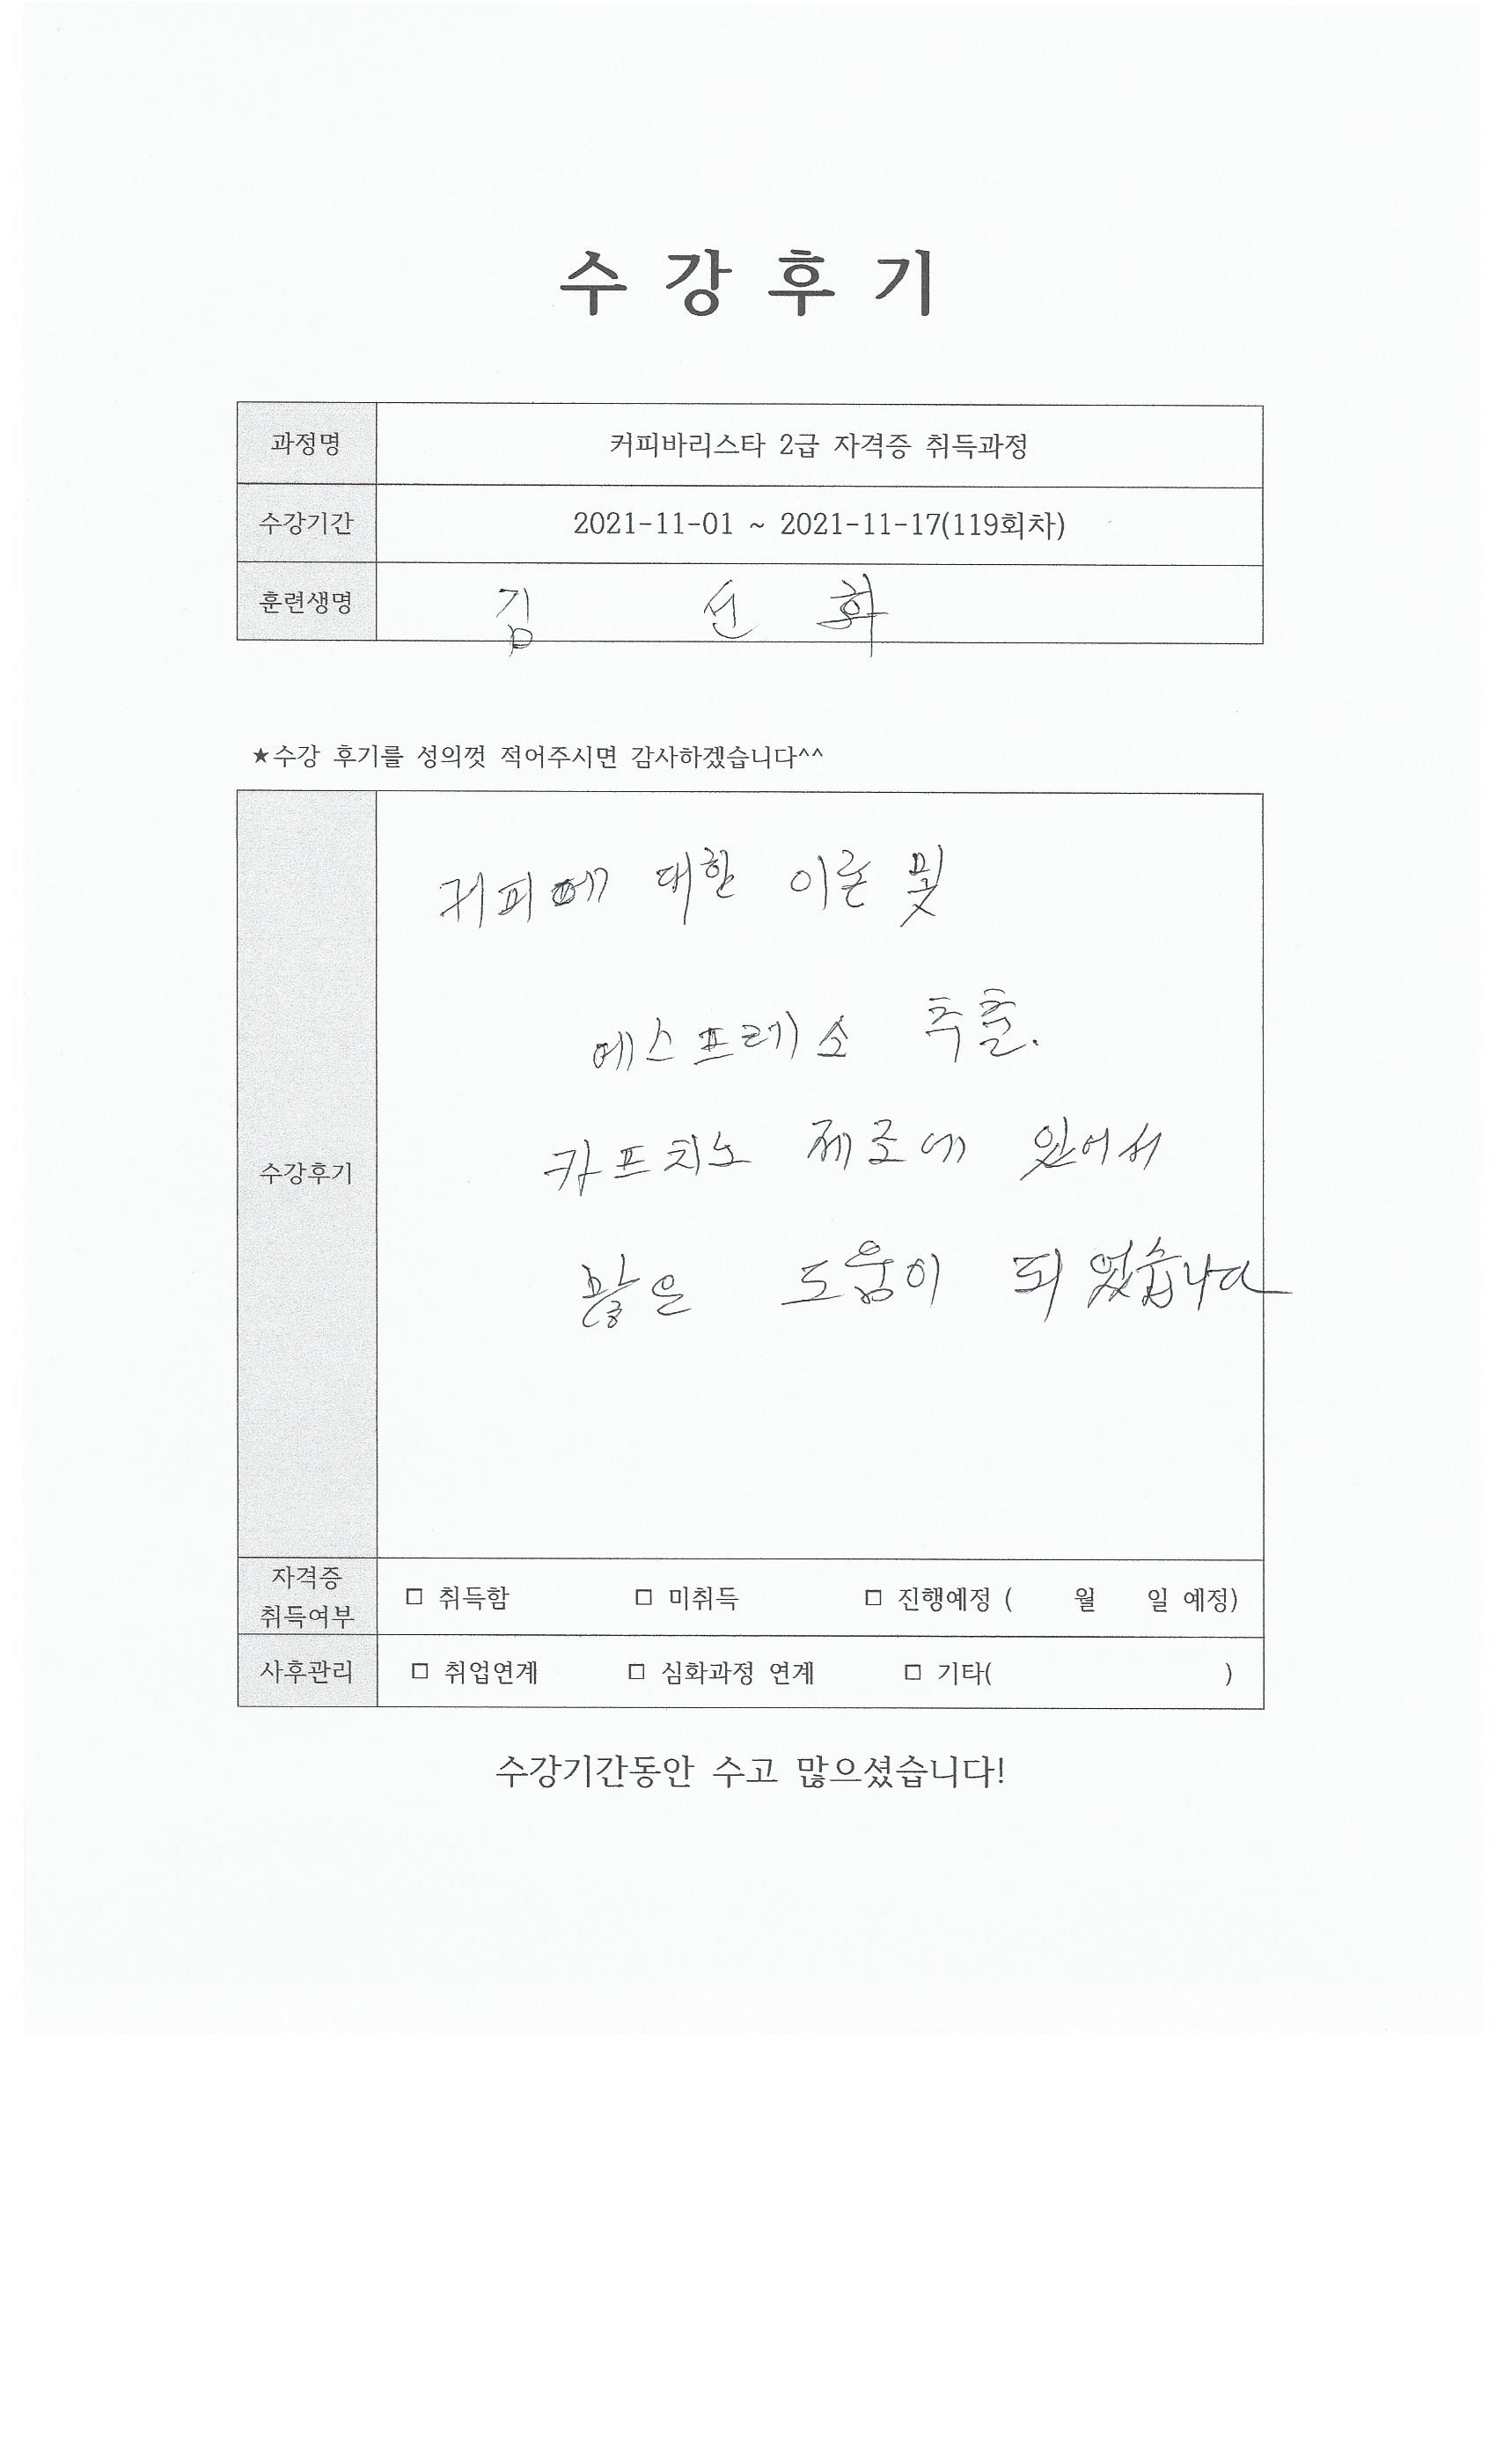 수 강 후 기
과정명 커피바리스타 2급 자격증 취득과정
수강기간 2021-11-01 ~ 2021-11-17(119회차)
훈련생명 김 선 화
★수강 후기를 성의껏 적어주시면 감사하겠습니다^^
수강후기
커피에 대한 이론 및
에스프레소 추출.
카프치노 제조에 있어서
많은 도움이 되었습니다
자격증 취득여부 □ 취득함 □ 미취득 □ 진행예정 ( 월 일 예정)
사후관리 □ 취업연계 □ 심화과정 연계 □ 기타( )
수강기간동안 수고 많으셨습니다!